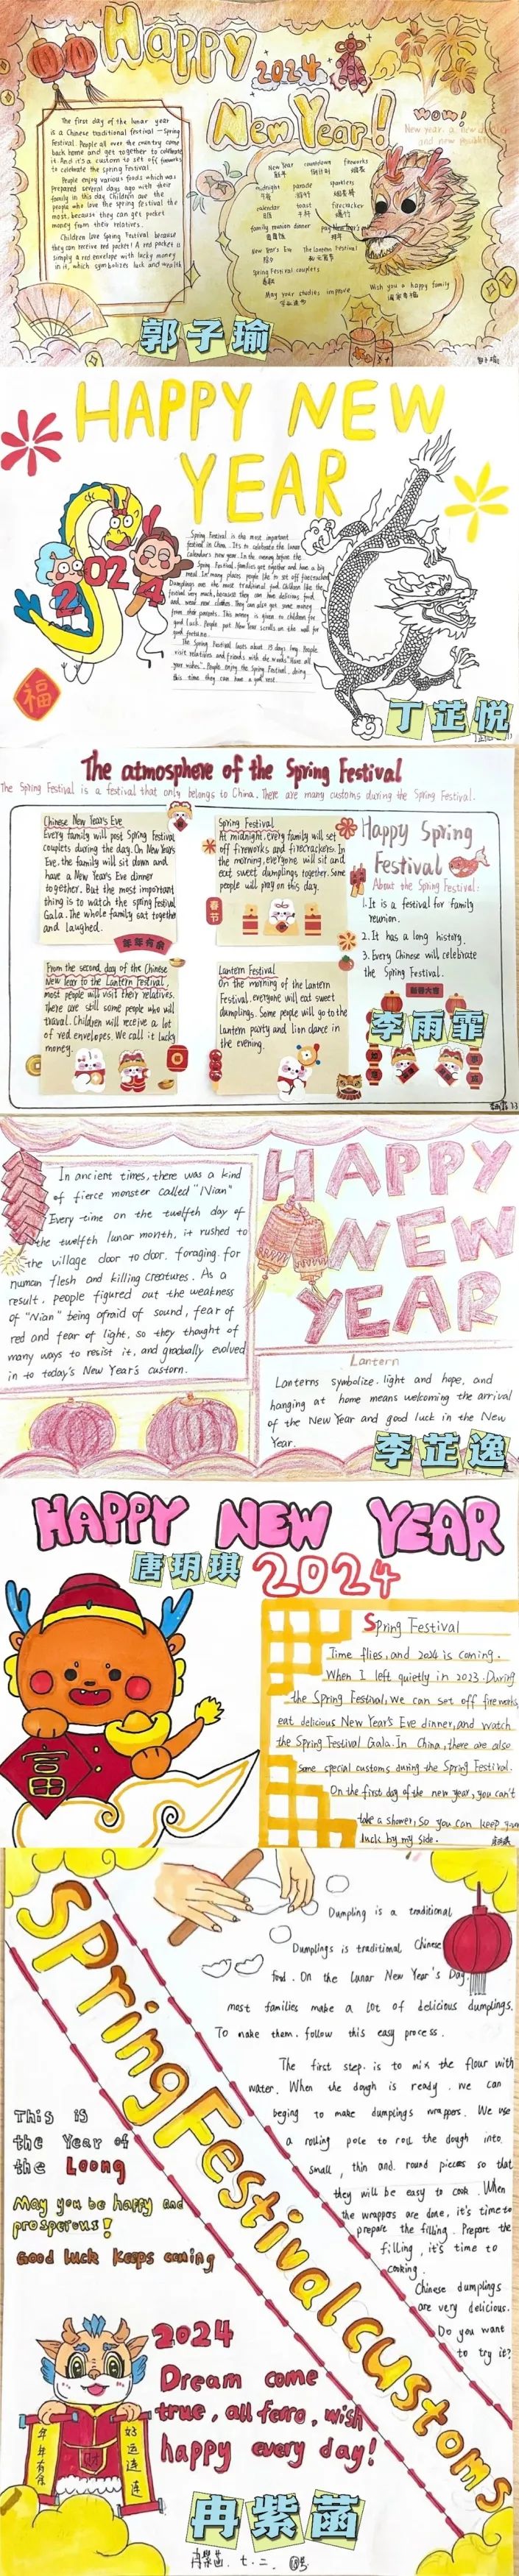 Happy
2024
New Year!
wow!
The first day of the lunar year
is a Chinese traditional festival - Spring
Festival. People all over the country come
back home and get together to celebrate
it. And it's a custom to set off fireworks
to celebrate the spring Festival.
People enjoy various foods which was
prepared several days ago with their
family in this day. Children are the
people who love the spring Festival the
most, because they can get pocket
money from their relatives.
Children love Spring Festival because
they can receive red pocket! A red pocket is
simply a red envelope with lucky money
in it, which symbolizes luck and wealth
New Year countdown fireworks
新年 倒计时 烟花
midnight parade sparklers
calendar toast firecracker
日历 干杯 爆竹
family reunion dinner
New Year's Eve The Lantern Festival
除夕
Spring Festival couplets
春联
May your studies improve
学业进步
Wish you a happy family
阖家幸福
郭子瑜
HAPPY NEW
YEAR
2024
福
Spring Festival is the most important
festival in China. It's to celebrate the lunar
calendar's new year. In the evening before the
Spring Festival, families get together and have a big
meal. In many places people like to set off firecrackers
Dumplings are the most traditional food. Children like the
festival very much, because they can have delicious food
and wear new clothes. They can also get some money
from their parents. This money is given to children for
good luck. People put New Year scrolls on the wall for
good fortune.
The Spring Festival lasts about 15 days long. People
visit relatives and friends with the words "Have all
your wishes". People enjoy the Spring Festival, during
this time they can have a good rest.
丁芷悦
The atmosphere of the Spring Festival
The Spring Festival is a festival that only belongs to China. There are many customs during the Spring Festival.
Chinese New Year's Eve
Every family will post Spring festival
couplets during the day. On New Year's
Eve, the family will sit down and
have a New Year's Eve dinner
together. But the most important
thing is to watch the spring festival
Gala. The whole family sat together
and laughed.
年年有余
Spring Festival
At midnight, every family will set
off fireworks and firecrackers. In
the morning, everyone will sit and
eat sweet dumplings together. Some
people will pray on this day.
春节
Happy Spring
Festival
About the Spring Festival:
1. It is a festival for family
reunion.
2. It has a long history.
3. Every Chinese will celebrate
the Spring Festival.
From the second day of the Chinese
New Year to the Lantern Festival,
most people will visit their relatives.
There are still some people who will
travel. Children will receive a lot
of red envelopes. We call it lucky
money.
Lantern Festival
On the morning of the Lantern
Festival, everyone will eat sweet
dumplings. Some people will go to the
Lantern party and lion dance in
the evening.
李雨霏
In ancient times, there was a kind
of fierce monster called "Nian"
Every time on the twelfth day of
the twelfth lunar month, it rushed to
the village door to door, foraging for
human flesh and killing creatures. As a
result, people figured out the weakness
of "Nian" being afraid of sound, fear of
red and fear of light, so they thought of
many ways to resist it, and gradually evolved
in to today's New Year's custom.
HAPPY
NEW
YEAR
Lantern
Lanterns symbolize light and hope, and
hanging at home means welcoming the arrival
of the New Year and good luck in the New
Year.
李芷逸
HAPPY NEW YEAR
唐玥琪
2024
富
Spring Festival
Time flies, and 2024 is coming.
When I left quietly in 2023. During
the Spring Festival, we can set off fireworks,
eat delicious New Year's Eve dinner, and watch
the Spring Festival Gala. In China, there are also
some special customs during the Spring Festival.
On the first day of the new year, you can't
take a shower, so you can keep your
luck by my side.
Spring Festival customs
Dumpling is a traditional
Dumplings is traditional Chinese
food. On the Lunar New Year's Day,
most families make a lot of delicious dumplings.
To make them, follow this easy process.
The first step is to mix the flour with
water. When the dough is ready, we can
beging to make dumplings wrappers. We use
a rolling pole to roll the dough into
small, thin and round pieces so that
they will be easy to cook. When
the wrappers are done, it's time to
prepare the filling. Prepare the
filling, it's time to
cooking.
Chinese dumplings
are very delicious.
Do you want
to try it?
This is
the Year of
the Loong
May you be happy and
prosperous!
Good luck keeps coming
2024
Dream come
true, all ferro, wish
happy every day!
年年有余
好运连连
冉紫菡
冉紫菡. 七.二.